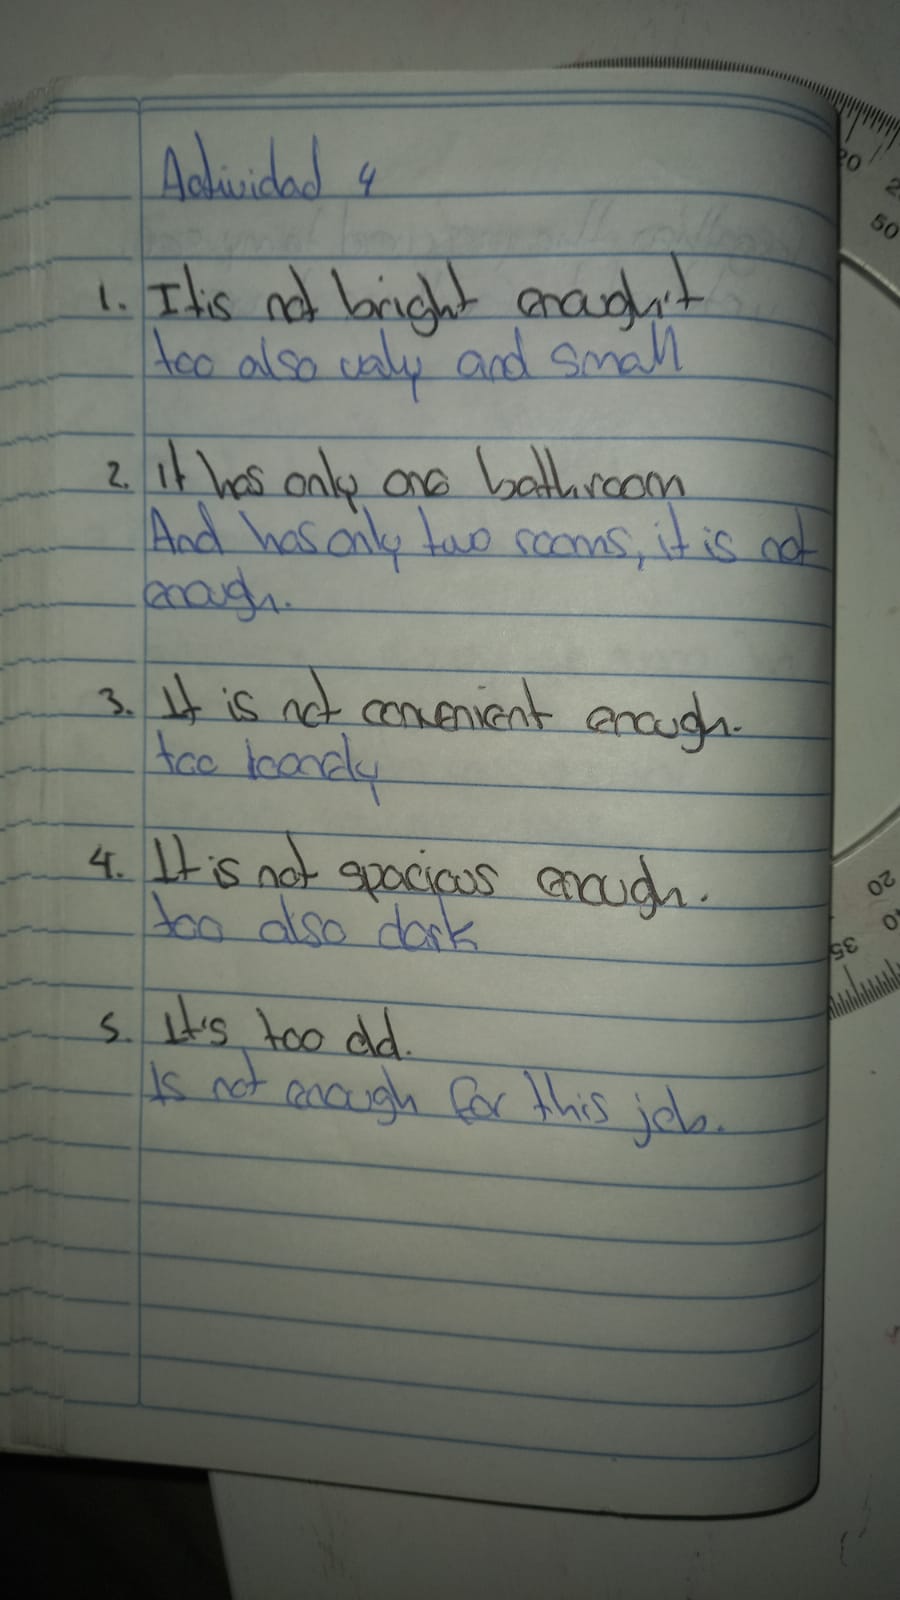 Actividad 4
1. It is not bright enough't
too also ualy and small
2. it has only one bathroom
And has only two rooms, it is not
enough.
3. It is not convenient enough.
too
4. It is not spacious enough.
too also dark
5. It's too old.
Is not enough for this job.
20
50
20
35